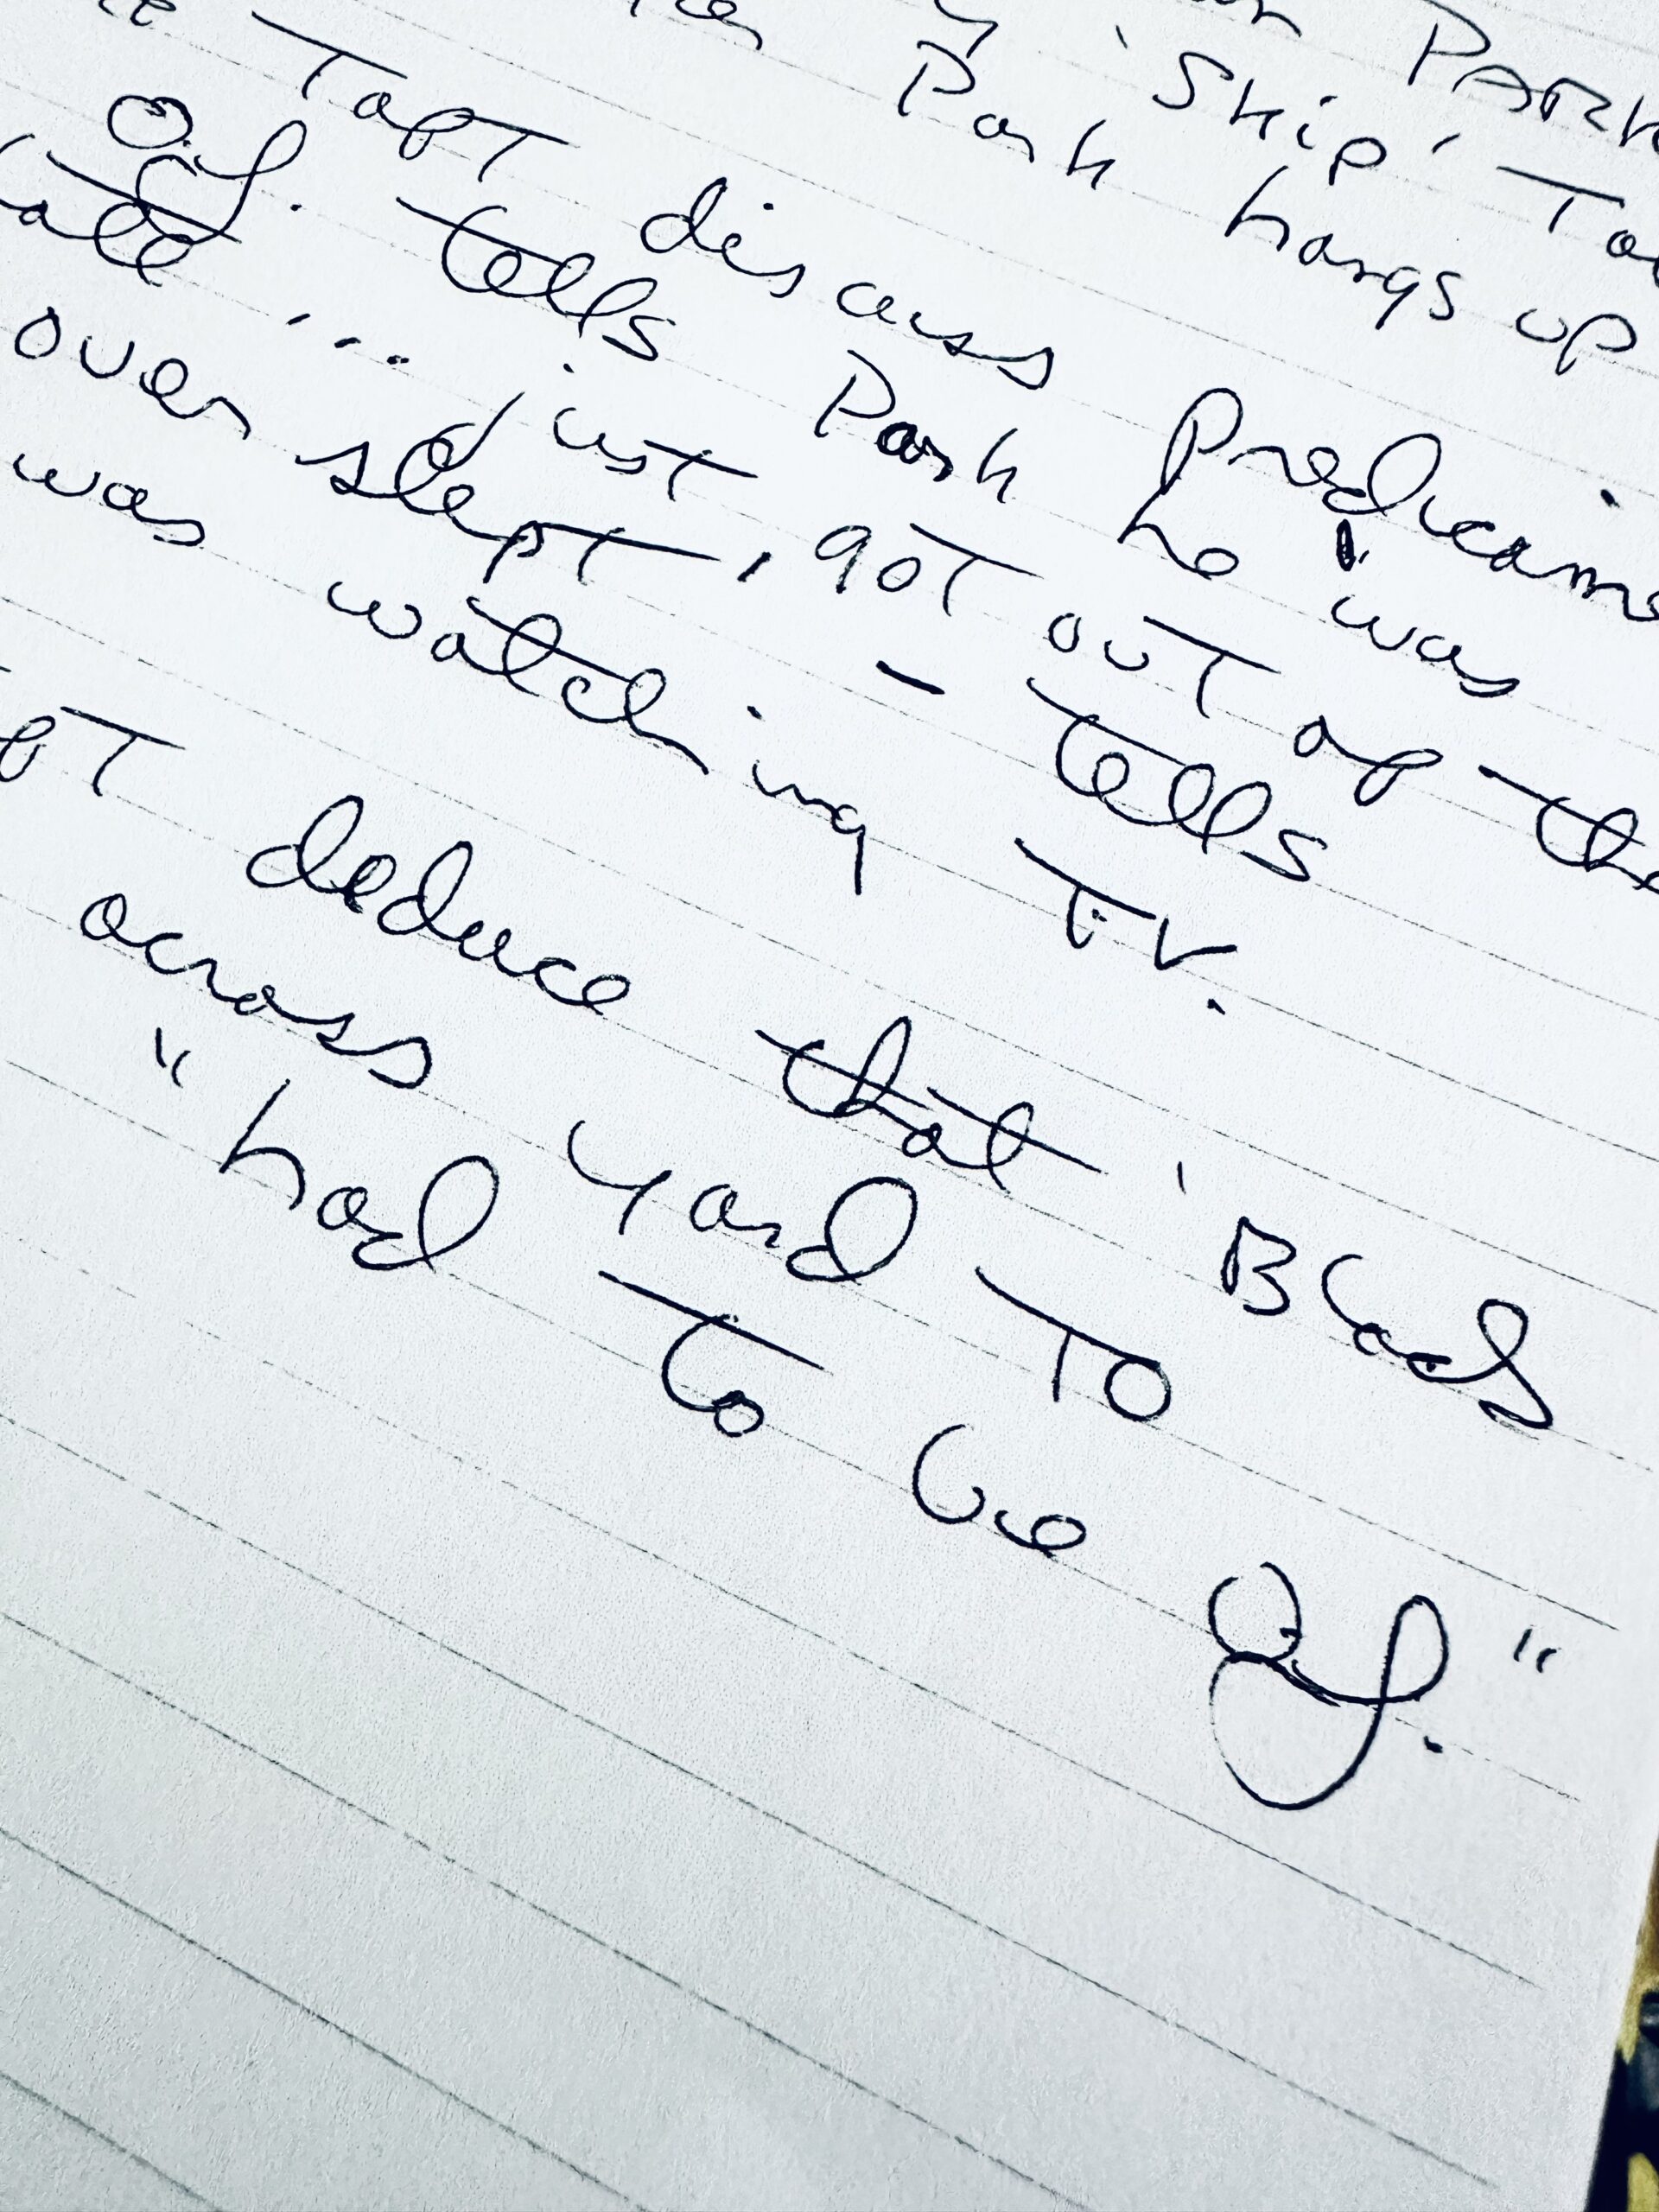 PARK
'Skip' Ta
Park hangs up
Tapt discuss Predicame
O.J. tells Park he was
late ... just got out of the
over slept, - tells
was watching T.V.
pt deduce that 'Black
across yard to
"had to be O.J."